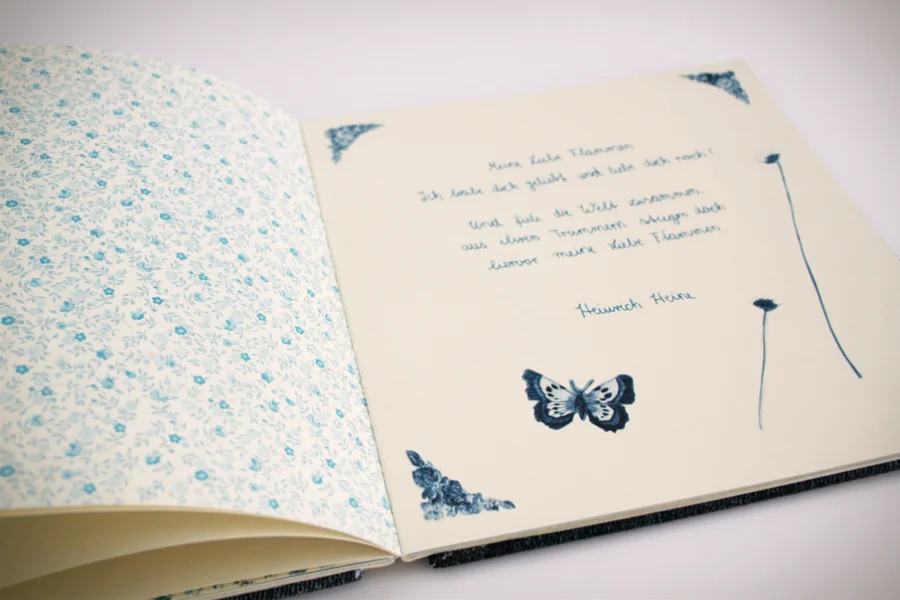 Meine Liebe Flammen
Ich habe dich geliebt und liebe dich noch!
Und fiele die Welt zusammen.
aus ihren Trümmern stiegen doch
hervor meine Liebe Flammen
Heinrich Heine